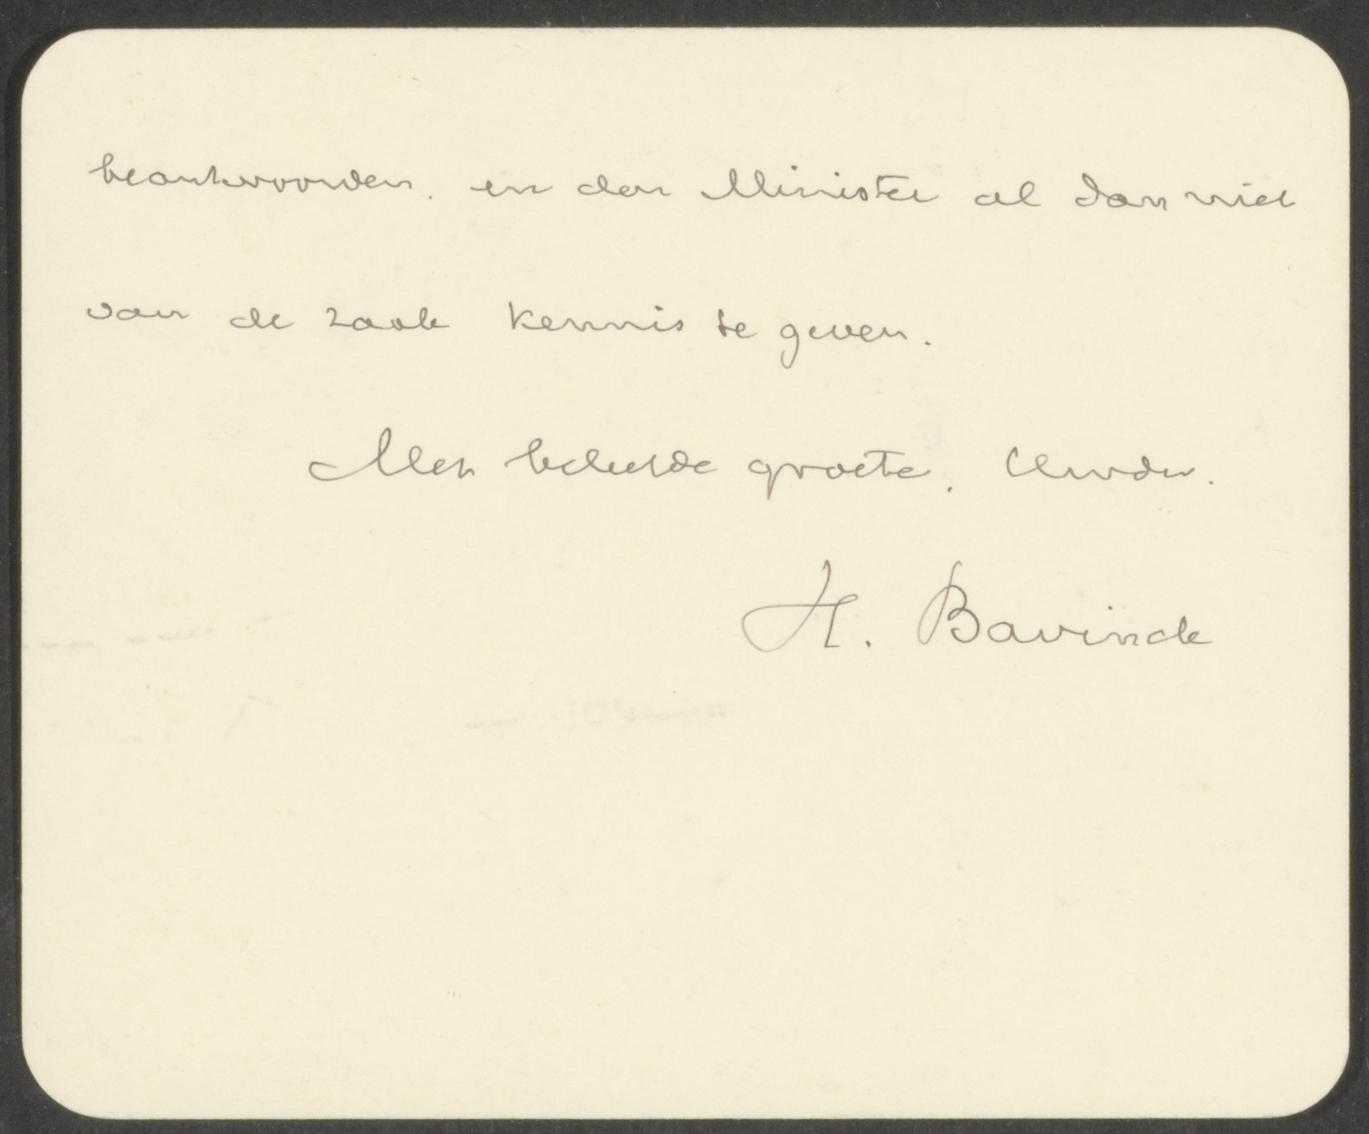 beantwoorden. en den Minister al dan niet
van de zaak kennis te geven.
Met beleefde groete, Uwdw.
H. Bavinck